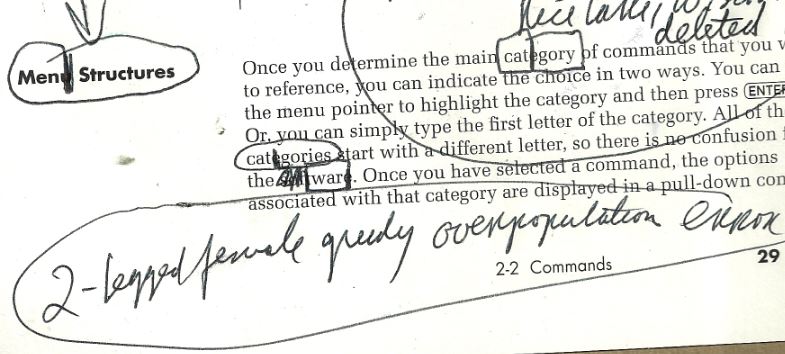 deleted
Menu Structures
Once you determine the main category of commands that you
to reference, you can indicate the choice in two ways. You can
the menu pointer to highlight the category and then press ENTE
Or, you can simply type the first letter of the category. All of th
categories start with a different letter, so there is no confusion
the ware. Once you have selected a command, the options
associated with that category are displayed in a pull-down com
2-legged female greedy overpopulation error
2-2 Commands
29